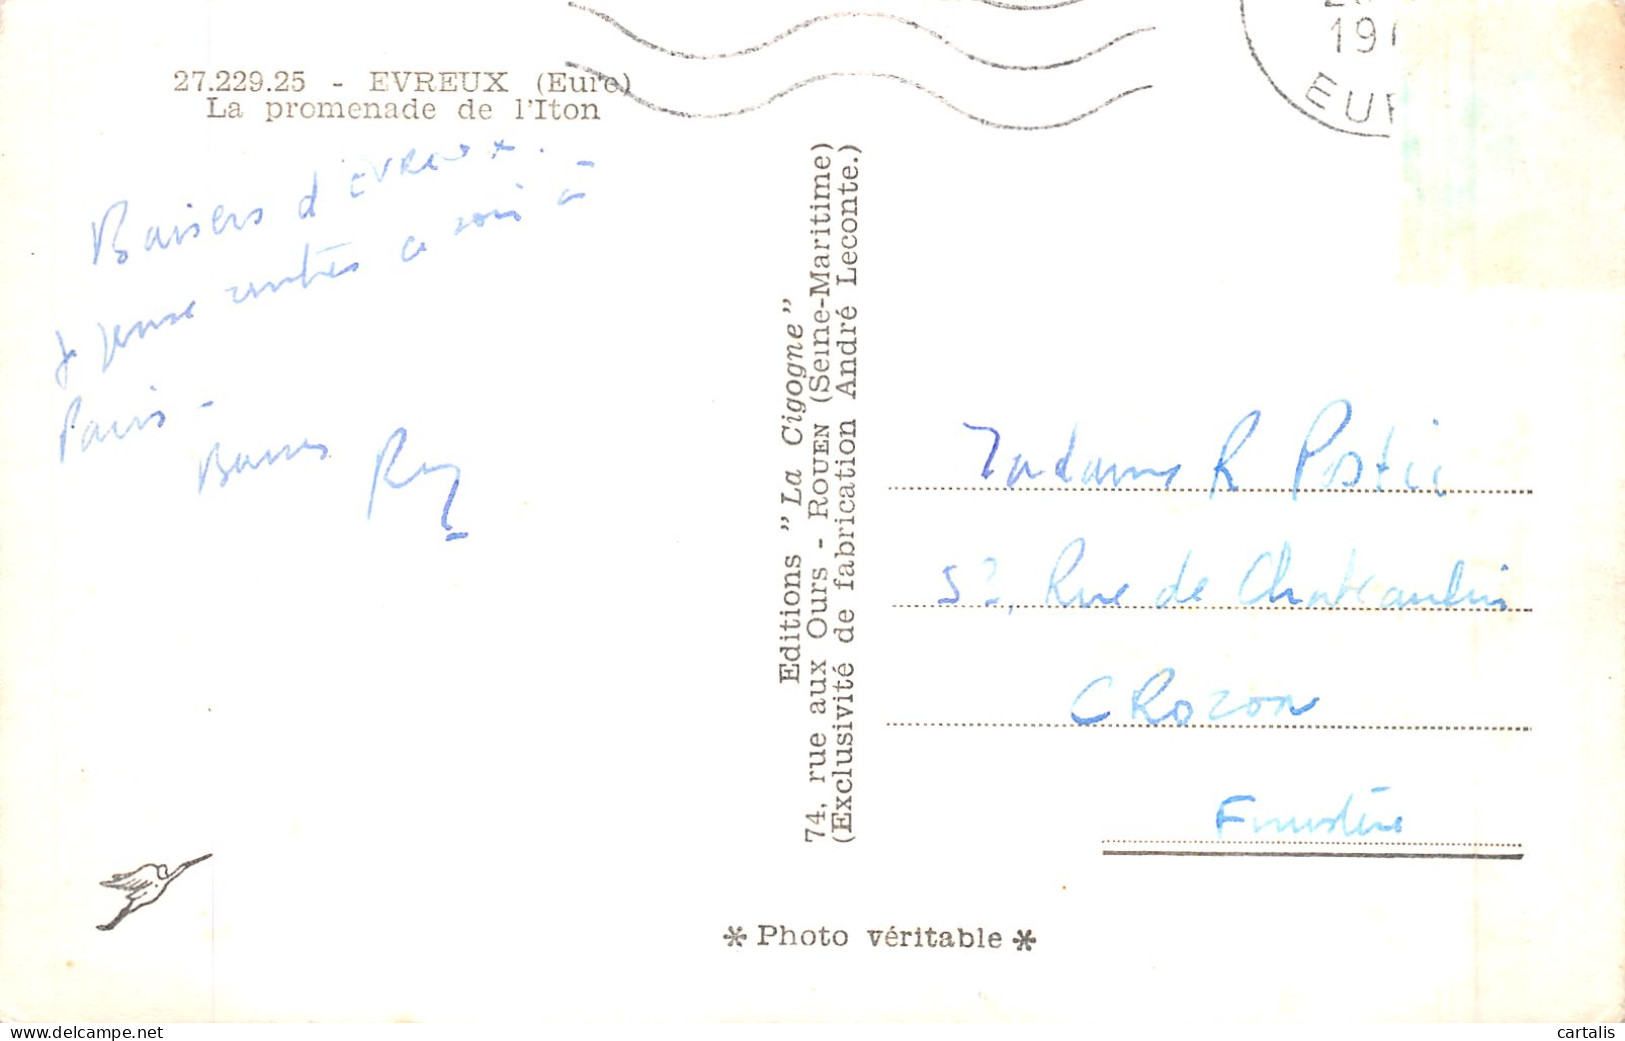 27.229.25 - EVREUX (Eure)
La promenade de l'Iton
Baisers d'EVREUX.
Je pense rentrer ce soir à
Paris -
2
19
EUR
Editions "La Cigogne"
74, rue aux Ours - ROUEN (Seine-Maritime)
(Exclusivité de fabrication André Leconte.)
Madame R Postic
52, Rue de Chateaulin
CROZON
Finistère
* Photo véritable *
delcampe.net
cartalis